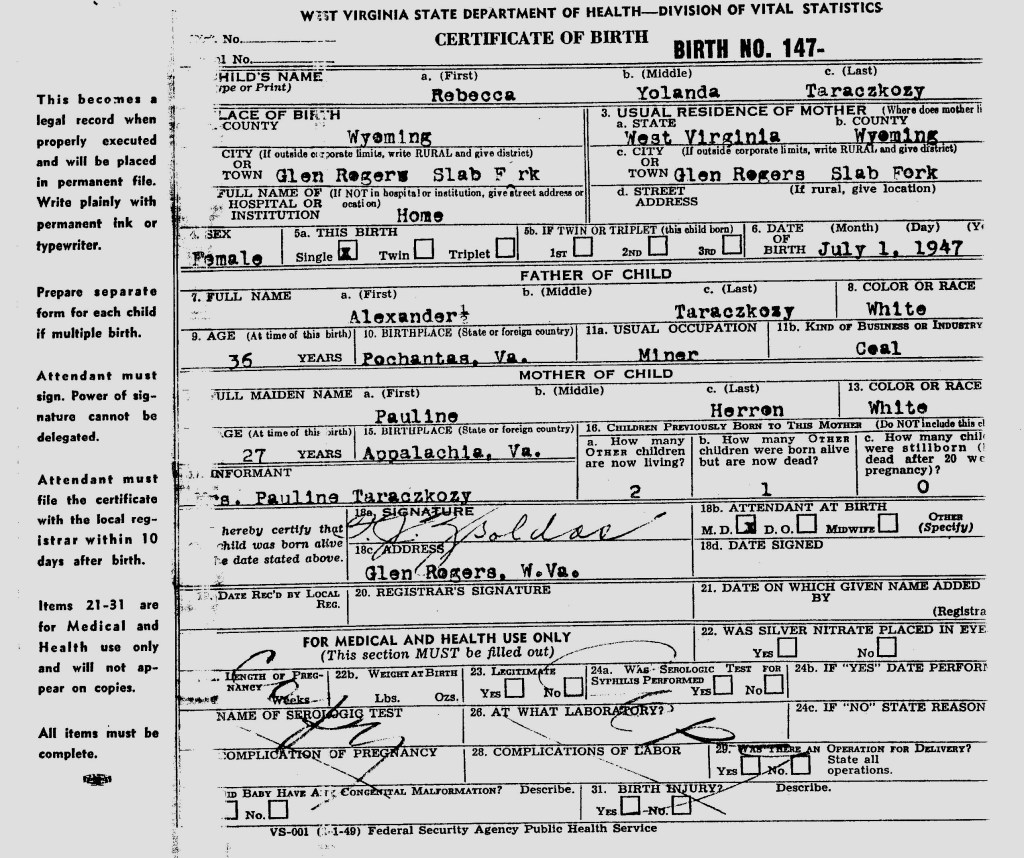 WEST VIRGINIA STATE DEPARTMENT OF HEALTH—DIVISION OF VITAL STATISTICS
No.
CERTIFICATE OF BIRTH
BIRTH NO. 147-
No.
HILD'S NAME
pe or Print)
a. (First)
b. (Middle)
c. (Last)
Rebecca Yolanda Taraczkozy
LACE OF BIRTH
COUNTY
Wyoming
3. USUAL RESIDENCE OF MOTHER (Where does mother li
a. STATE b. COUNTY
West Virginia Wyoming
CITY (If outside corporate limits, write RURAL and give district)
OR
TOWN Glen Rogers Slab F rk
c. CITY (If outside corporate limits, write RURAL and give district)
OR
TOWN Glen Rogers Slab Fork
FULL NAME OF (If NOT in hospital or institution, give street address or
HOSPITAL OR ocation)
INSTITUTION Home
d. STREET (If rural, give location)
ADDRESS
4. SEX
Female
5a. THIS BIRTH
Single X Twin Triplet
5b. IF TWIN OR TRIPLET (this child born)
1ST 2ND 3RD
6. DATE (Month) (Day) (Y
OF
BIRTH July 1, 1947
FATHER OF CHILD
7. FULL NAME a. (First) b. (Middle) c. (Last)
Alexander½ Taraczkozy
8. COLOR OR RACE
White
9. AGE (At time of this birth)
36 YEARS
10. BIRTHPLACE (State or foreign country)
Pochantas, Va.
11a. USUAL OCCUPATION
Miner
11b. KIND OF BUSINESS OR INDUSTRY
Coal
MOTHER OF CHILD
ULL MAIDEN NAME a. (First) b. (Middle) c. (Last)
Pauline Herron
13. COLOR OR RACE
White
GE (At time of this birth)
27 YEARS
15. BIRTHPLACE (State or foreign country)
Appalachia, Va.
16. CHILDREN PREVIOUSLY BORN TO THIS MOTHER (Do NOT include this cl
a. How many
OTHER children
are now living?
2
b. How many OTHER
children were born alive
but are now dead?
1
c. How many chil
were stillborn (
dead after 20 we
pregnancy)?
0
INFORMANT
s. Pauline Taraczkozy
hereby certify that
hild was born alive
e date stated above.
18a. SIGNATURE
18c. ADDRESS
Glen Rogers, W.Va.
18b. ATTENDANT AT BIRTH
M. D. X D. O. MIDWIFE OTHER
(Specify)
18d. DATE SIGNED
DATE REC'D BY LOCAL
REG.
20. REGISTRAR'S SIGNATURE
21. DATE ON WHICH GIVEN NAME ADDED
BY
(Registra
FOR MEDICAL AND HEALTH USE ONLY
(This section MUST be filled out)
22. WAS SILVER NITRATE PLACED IN EYE
YES NO
LENGTH OF PREG-
NANCY
Weeks
22b. WEIGHT AT BIRTH
Lbs. Ozs.
23. LEGITIMATE
YES NO
24a. WAS SEROLOGIC TEST FOR
SYPHILIS PERFORMED YES NO
24b. IF "YES" DATE PERFORM
NAME OF SEROLOGIC TEST
26. AT WHAT LABORATORY?
24c. IF "NO" STATE REASON
COMPLICATION OF PREGNANCY
28. COMPLICATIONS OF LABOR
29. WAS THERE AN OPERATION FOR DELIVERY?
YES NO. State all
operations.
ID BABY HAVE A CONGENITAL MALFORMATION? Describe.
No.
31. BIRTH INJURY? Describe.
YES NO.
VS-001 ( -1-49) Federal Security Agency Public Health Service
This becomes a
legal record when
properly executed
and will be placed
in permanent file.
Write plainly with
permanent ink or
typewriter.
Prepare separate
form for each child
if multiple birth.
Attendant must
sign. Power of sig-
nature cannot be
delegated.
Attendant must
file the certificate
with the local reg-
istrar within 10
days after birth.
Items 21-31 are
for Medical and
Health use only
and will not ap-
pear on copies.
All items must be
complete.